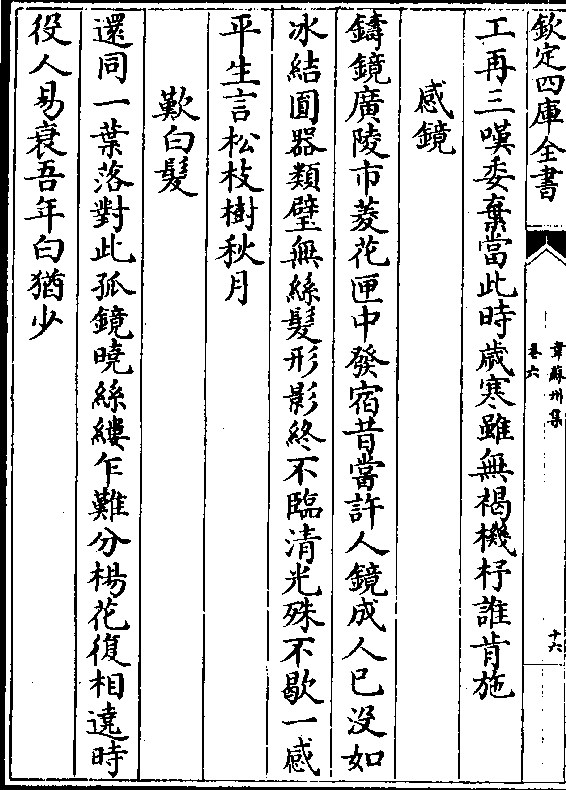 欽定四庫全書
韋蘇州集
卷六
十六
工再三嘆委棄當此時歲寒雖無褐機杼誰肯施
感鏡
鑄鏡廣陵市菱花匣中發宿昔嘗許人鏡成人已沒如
冰結圓器類璧無絲髮形影終不臨清光殊不歇一感
平生言松枝樹秋月
歎白髮
還同一葉落對此孤鏡曉絲縷乍難分楊花復相遶時
役人易衰吾年白猶少